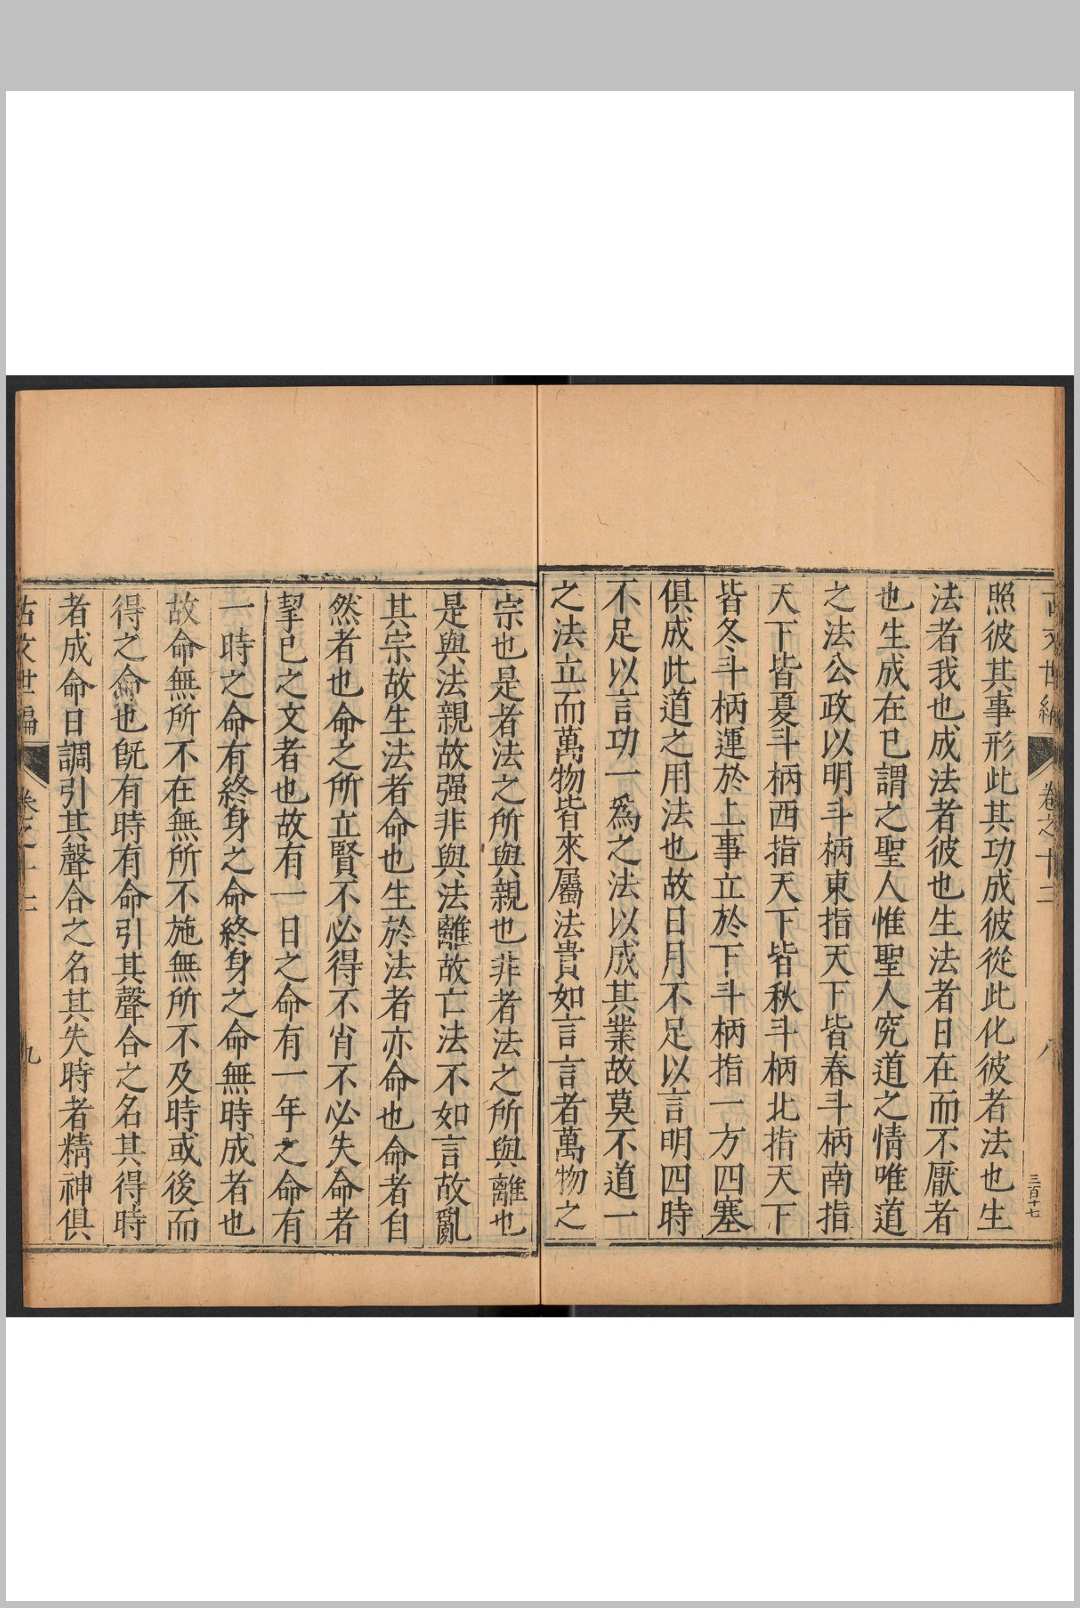 卷之十二
八
三百十七
照彼其事形此其功成彼從此化彼者法也生
法者我也成法者彼也生法者日在而不厭者
也生成在已謂之聖人惟聖人究道之情唯道
之法公政以明斗柄東指天下皆春斗柄南指
天下皆夏斗柄西指天下皆秋斗柄北指天下
皆冬斗柄運於上事立於下斗柄指一方四塞
俱成此道之用法也故日月不足以言明四時
不足以言功一爲之法以成其業故莫不道一
之法立而萬物皆來屬法貴如言言者萬物之
宗也是者法之所與親也非者法之所與離也
是與法親故强非與法離故亡法不如言故亂
其宗故生法者命也生於法者亦命也命者自
然者也命之所立賢不必得不肖不必失命者
挈已之文者也故有一日之命有一年之命有
一時之命有終身之命終身之命無時成者也
故命無所不在無所不施無所不及時或後而
得之命也旣有時有命引其聲合之名其得時
者成命日調引其聲合之名其失時者精神俱
古文世編
卷之十二
九